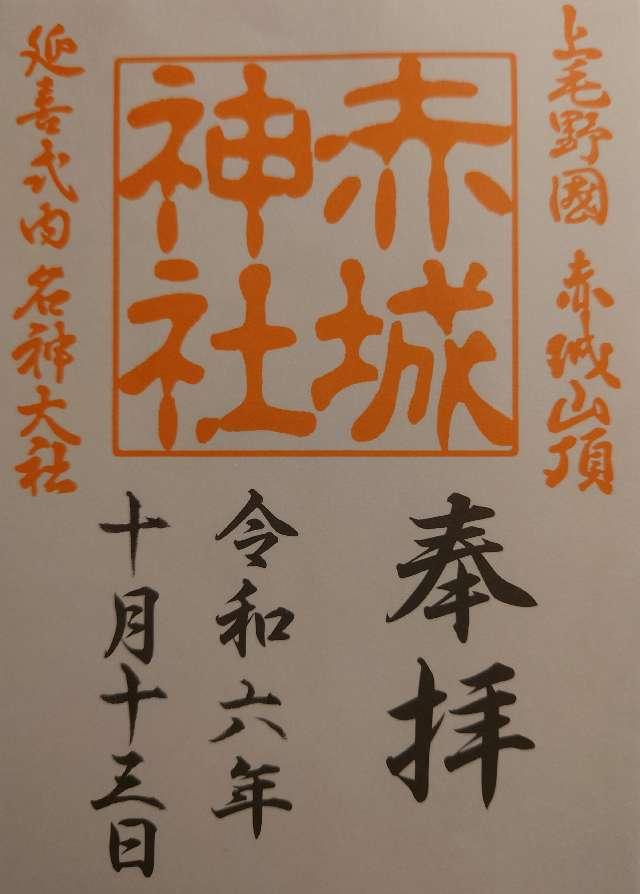 上毛野國 赤城山頂
赤城
神社
延喜式内 名神大社
奉拝
令和六年
十月十三日